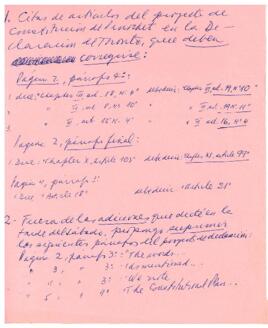 1. Citas de artículos del proyecto de
Constitución de Pinochet en la De-
claración de Toronto, que deben
corregirse:
Página 2, párrafo 4°:
1. dice: "Chapter III art. 18, N° 4" debe decir: Chapter II art. 19, N° 10"
" II art. 8, N° 10" " II art. 19, N° 11"
" II art. 15 N° 4" " II art. 16, N° 4
Página 2, párrafo final:
1. dice: Chapter X, artículo 105 debe decir: Chapter XI, article 95"
Página 4, párrafo 3°
1. dice: "Article 18" debe decir: article 21"
2. Fuera de las adiciones que dicté en la
tarde del sábado, propongo suprimir
los siguientes párrafos del proyecto de declaración:
Página 2, párrafo 3°: The words...
" 3, " 3: As mentioned...
" 4 " 3: We note
" 5 " 4° The Constitutional Plan...